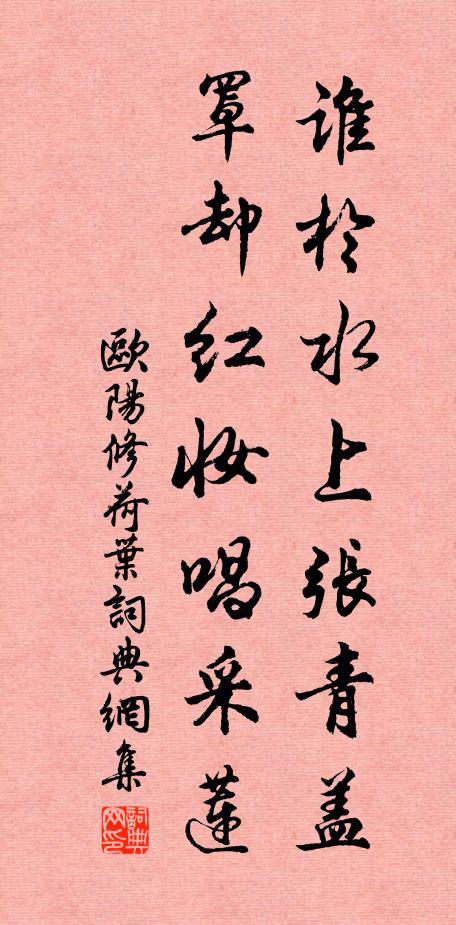 誰於水上張青盖
罩却红妆唱采蓮
歐陽修荷葉詞典網集
詞典网印